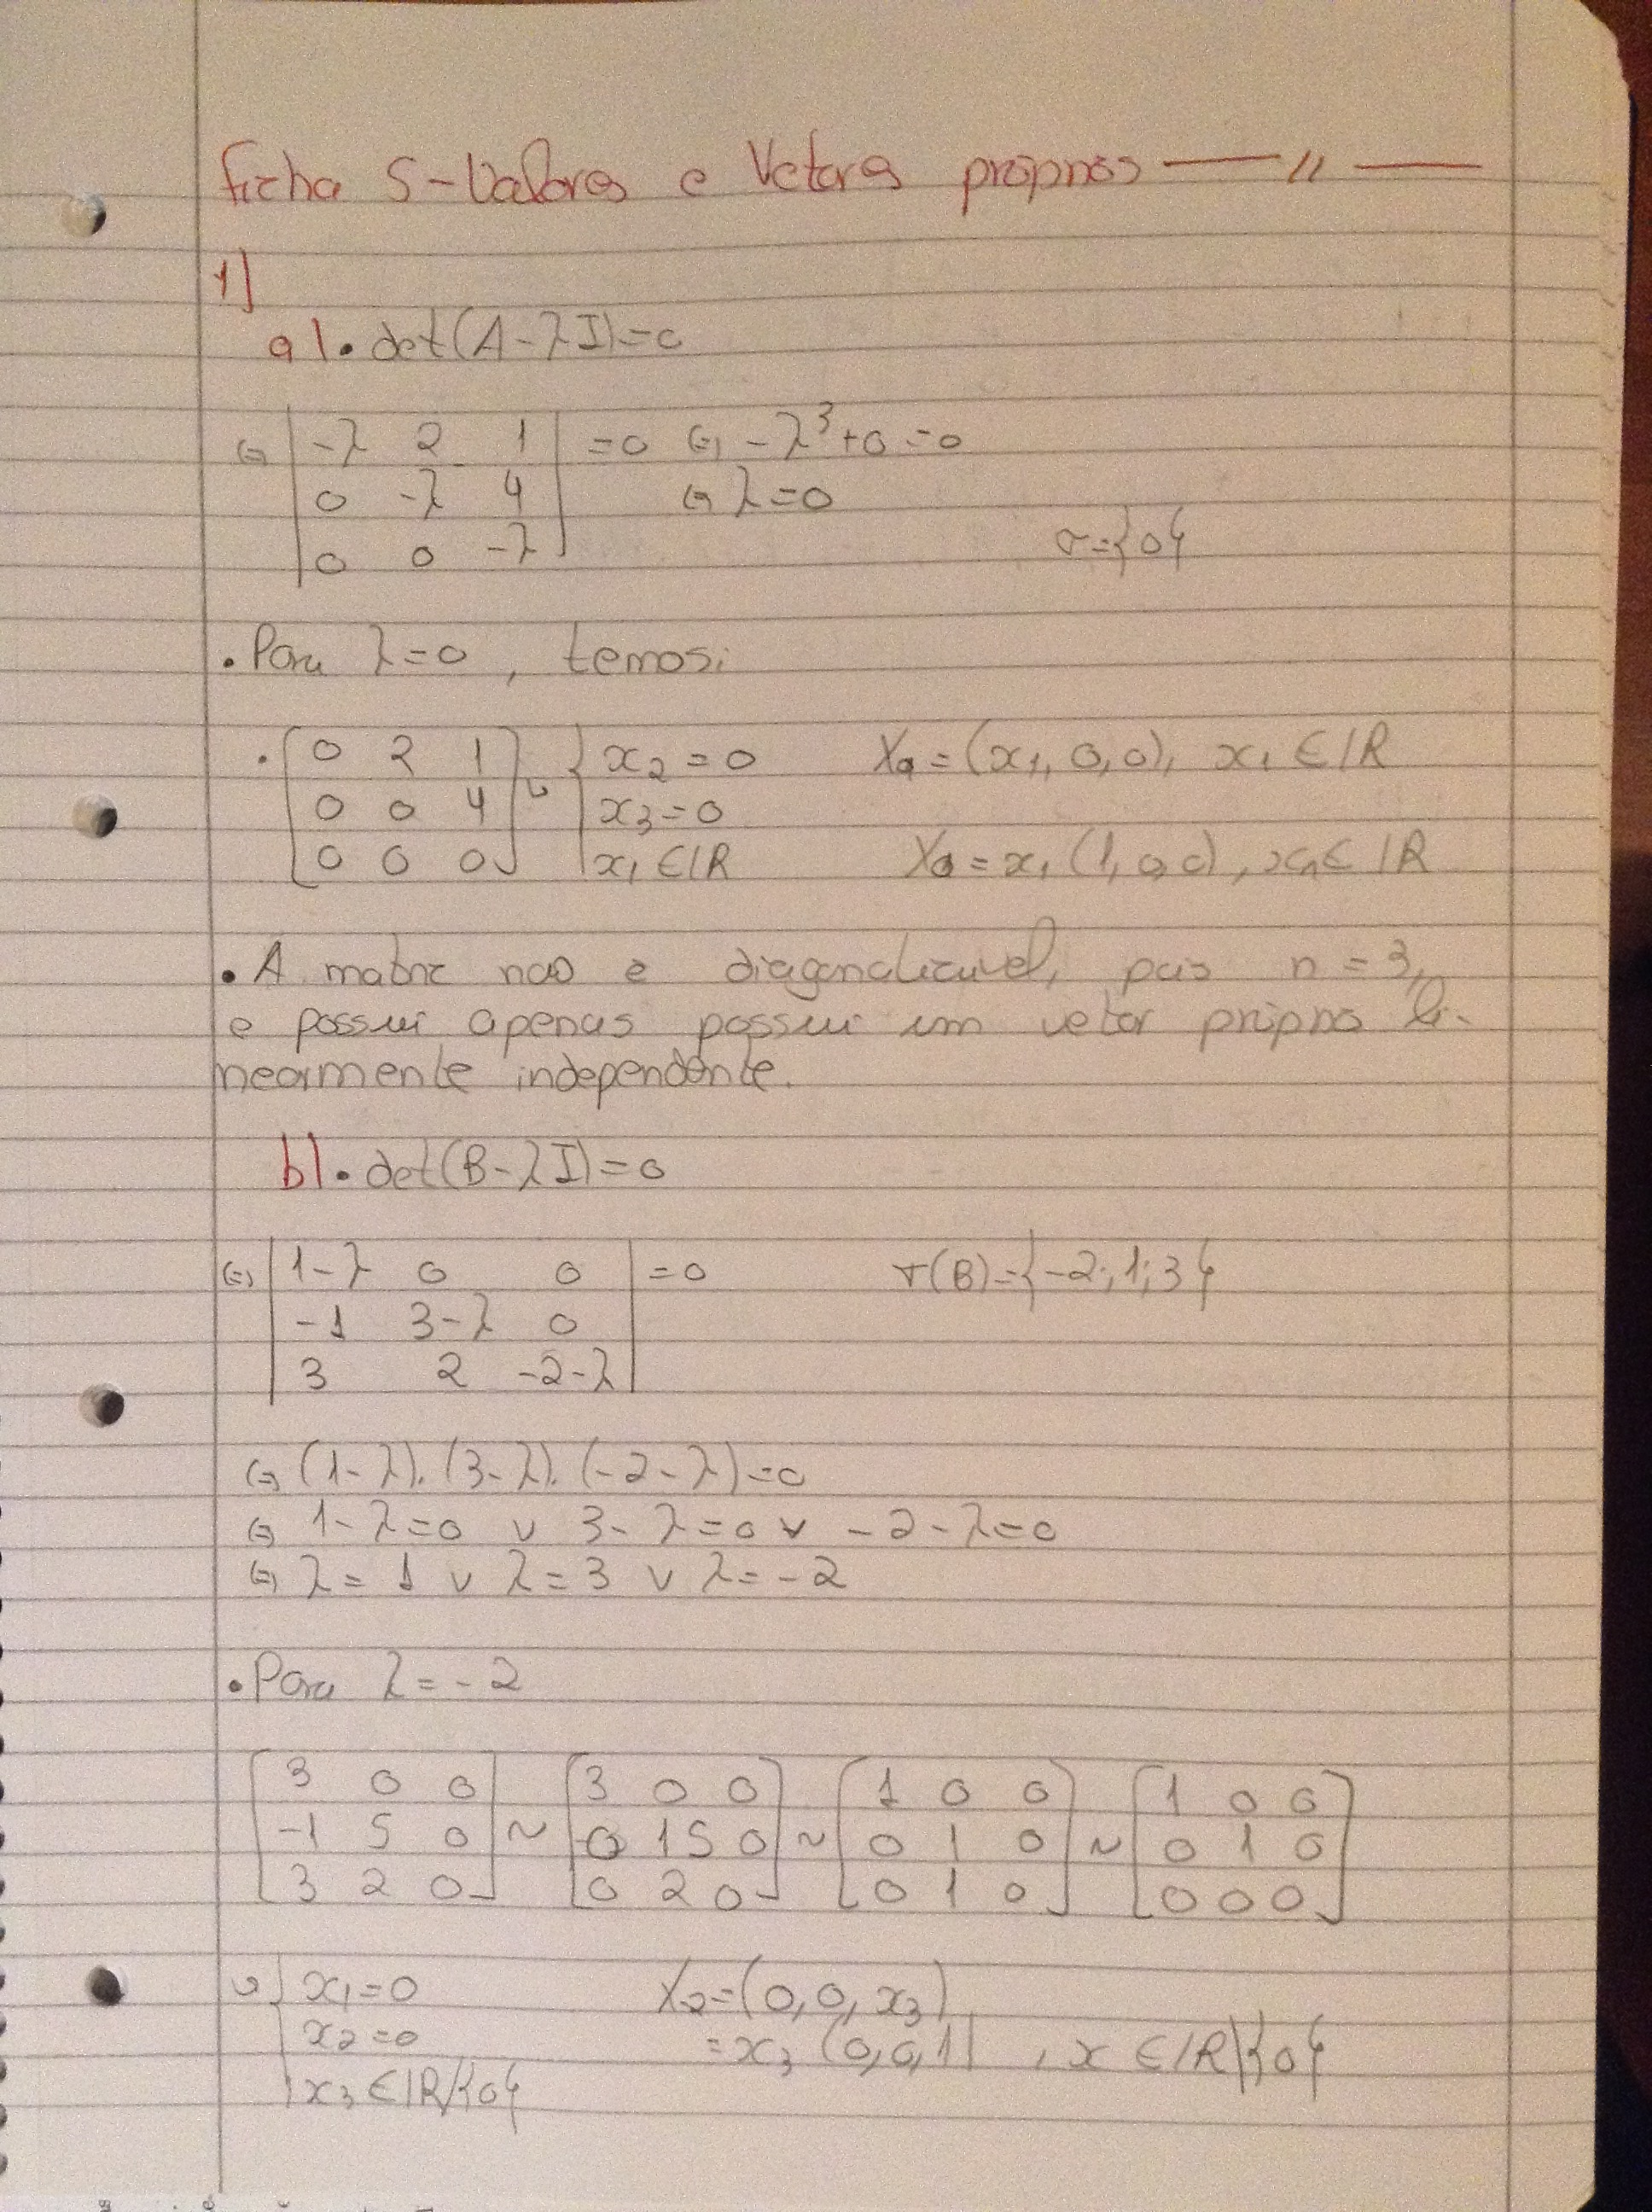 Ficha 5 - Valores e Vetores próprios —— // ——
1]
a). det(A-λI)=0
(=) | -λ 2 1 | =0 (=) -λ³+0=0
| 0 -λ 4 | (=) λ=0
σ={0}
| 0 0 -λ |
• Para λ=0, temos:
• [ 0 2 1 ] { x₂=0 X₀=(x₁,0,0), x₁∈IR
[ 0 0 4 ] { x₃=0
[ 0 0 0 ] { x₁∈IR X₀=x₁(1,0,0), x₁∈IR
• A matriz não é diagonalizável, pois n=3,
e possui apenas possui um vetor próprio li-
nearmente independente.
b). det(B-λI)=0
(=) | 1-λ 0 0 | =0 σ(B)={-2;1;3}
| -1 3-λ 0 |
| 3 2 -2-λ |
(=) (1-λ).(3-λ).(-2-λ)=0
(=) 1-λ=0 ∨ 3-λ=0 ∨ -2-λ=0
(=) λ=1 ∨ λ=3 ∨ λ=-2
• Para λ=-2
[ 3 0 0 ] ~ [ 3 0 0 ] ~ [ 1 0 0 ] ~ [ 1 0 0 ]
[ -1 5 0 ] [ 0 15 0 ] [ 0 1 0 ] [ 0 1 0 ]
[ 3 2 0 ] [ 0 2 0 ] [ 0 1 0 ] [ 0 0 0 ]
{ x₁=0 X₂=(0,0,x₃)
{ x₂=0 =x₃(0,0,1), x∈IR\{0}
{ x₃∈IR\{0}